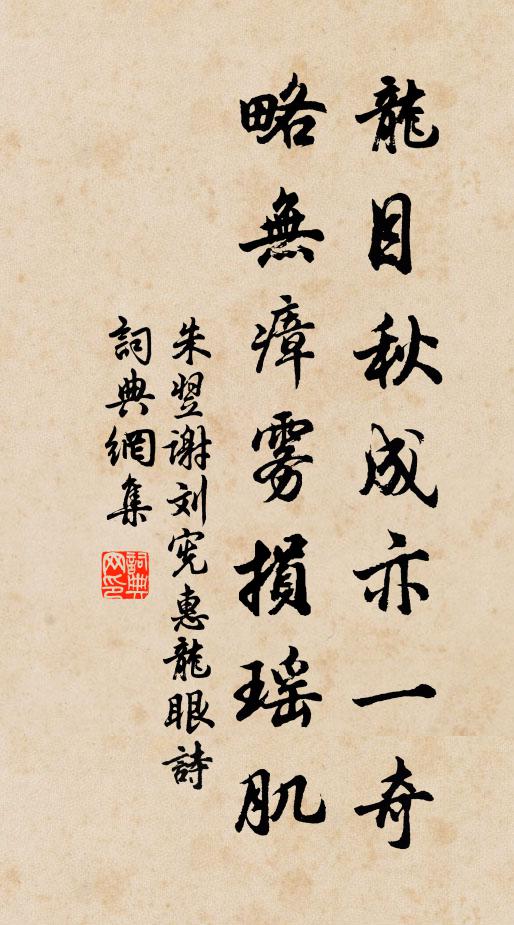 龍目秋成亦一奇
略無瘴雾損瑶肌
朱翌谢刘宪惠龍眼詩
詞典網集
詞典網印